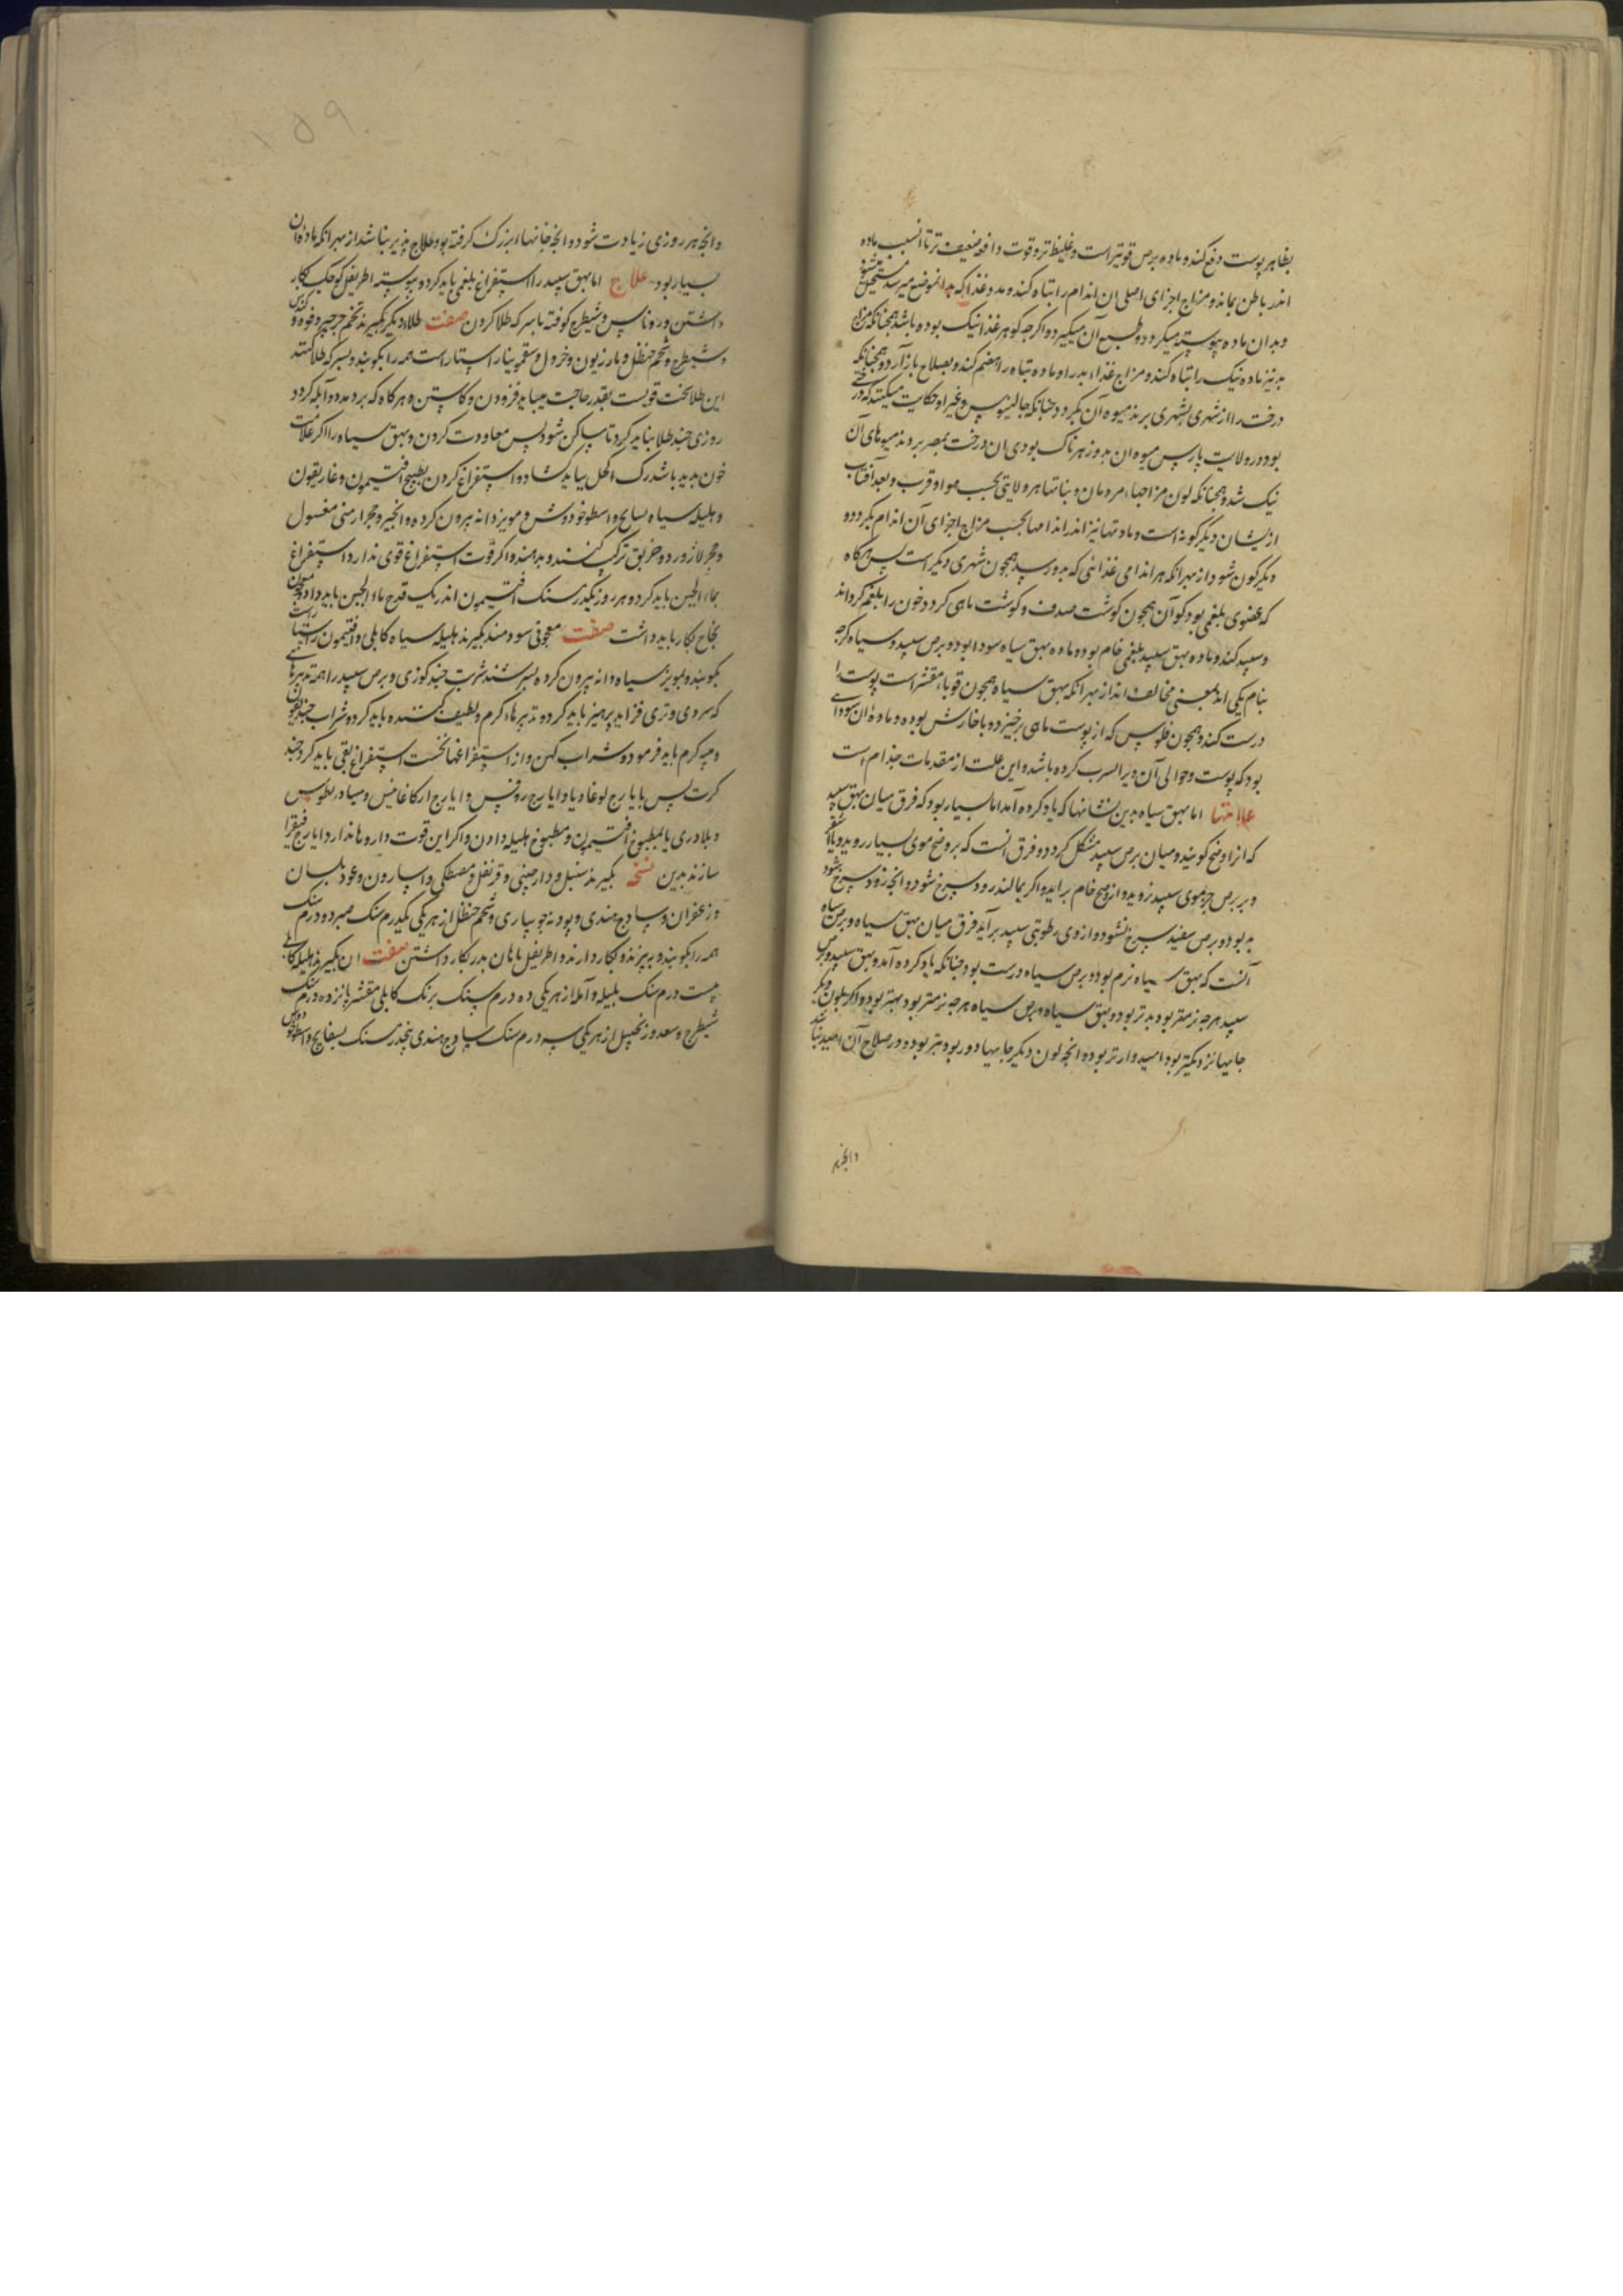 بظاهر پوست دفع کند و ماده برص قویتر است و غلیظ تر و قوت دافعه ضعیف تر تا انسبب ماده
اندر باطن بماند و مزاج اجزای اصلی ان اندام را تباه کند و مدد غذا که بدانموضع میرسد مستحیل میشود
و بدان ماده پیوسته میکردد و طبع آن میکیرد و اکرچه کوهر غذا نیک بوده باشد همچنانکه مزاج
بد نیز ماده نیک را تباه کند و مزاج غذاء بد را و ماده تباه را هضم کند و بصلاح بازآرد و همچنانکه
درخت را از شهری بشهری برند میوه آن بکردد چنانکه جالینوس و غیر او حکایت میکنند که درختی
بود در ولایت پارس میوه ان بد و زهرناک بودی ان درخت بمصر بردند میوهای آن
نیک شد و همچنانکه لون مزاجهاء مردمان و نباتها هر ولایتی بحسب هوا و قرب و بعد آفتاب
ازیشان دیکرکونه است و مادتها نیز اندر اندامها بحسب مزاج اجزای آن اندام بکردد و
دیکرکون شود از بهر انکه هر اندامی غذائی که بدو رسد همچون شهری دیکر است پس هرکاه
که عضوی بلغمی بود کوآن همچون کوشت صدف و کوشت ماهی کردد خون را بلغم کرداند
و سپید کند و ماده بهق سپید بلغمی خام بود و ماده بهق سیاه سودا بود و برص سپید و سیاه کرچه
بنام یکی اند بمعنی مخالف اند از بهر انکه بهق سیاه همچون قوباء مقشر است پوست را
درست کند و همچون فلوس که از پوست ماهی برخیزد و با خارش بوده و ماده ان سودائی
بود که پوست و حوالی آن ویرا السرب کرده باشد و این علت از مقدمات جذام است
علامتها اما بهق سیاه بدین نشانها که یاد کرده آمد اما بسیار بود که فرق میان بهق سپید
که انرا وضح کویند و میان برص سپید مشکل کردد و فرق انست که بر وضح موی سیاه روید و یا اشقر
و بر برص جز موی سپید نروید و از وضح خام برآید و اکر بمالند زود سرخ شود و انچه زود سرخ شود
به بود و برص سفید سرخ نشود و از وی رطوبتی سپید برآید فرق میان بهق سیاه و برص سیاه
آنست که بهق سیاه نرم بود و برص سیاه درشت بود چنانکه یاد کرده آمد و بهق سپید و برص
سپید هرچه نرمتر بود بدتر بود و بهق سیاه و برص سیاه هرچه نرمتر بود بهتر بود و اکر بلون دیکر
جایها نزدیکتر بود امیدوارتر بود و انچه لون دیکر جایها دور بود بتر بود و در صلاح آن امید نباشد
وانچه هر
وانچه هر روزی زیادت شود و انچه جانها بزرک کرفته بود علاج پذیر نباشد از بهر انکه ماده ان
بسیار بود علاج اما بهق سپید را استفراغ بلغمی باید کرد و پیوسته اطریفل کوچک بکار
داشتن و روناس و شیطرج کوفته با سرکه طلا کردن صفت طلاء دیکر بکیرند تخم جرجیر و فوه و کندس
و شیطرج و شحم حنظل و مازریون و خردل و سقمونیا راستاراست همه را بکوبند و بسرکه طلا کنند
این طلا سخت قویست بقدر حاجت میباید فزودن و کاستن و هرکاه که بردمد و آبله کردد
روزی چند طلا نباید کرد تا ساکن شود پس معاودت کردن و بهق سیاه را اکر علامت
خون بدید باشد رک اکحل بباید کشاد و استفراغ کردن بطبیخ افتیمون و غاریقون
و هلیله سیاه و بسفایج و اسطوخودوس و مویز دانه بیرون کرده و انجیر و حجر ارمنی مغسول
و حجر لازورد و خربق ترکیب کنند و بدهند و اکر قوت استفراغ قوی ندارد استفراغ
بماء الجبن باید کرد و هر روز یکدرسنک افتیمون اندر یک قدح ماء الجبن باید داد و معجون
نجاح بکار باید داشت صفت معجونی سودمند بکیرند هلیله سیاه کابلی و افتیمون راستاراست
بکوبند و بمویز سیاه دانه بیرون کرده بسرشند شربت چند کوزی و برص سپید را همه تدبیرهائی
که سردی و تری فزاید پرهیز باید کرد و تدبیرهاء کرم و لطیف کننده باید کرد و شراب
و میبه کرم باید فرمود و شراب کهن و از استفراغها نخست استفراغ بقی باید کرد چند
کرت پس بایارج لوغادیا و ایارج روفس و ایارج ارکاغانیس و مثرادریطوس
و بلادری یا بمطبوخ افتیمون و مطبوخ هلیله دادن و اکر این قوت داروها ندارد ایارج فیقرا
سازند بدین نسخه بکیرند سنبل و دارچینی و قرنفل و مصطکی و اسارون و عود بلسان
و زعفران و سادج هندی و پودنه جویباری و شحم حنظل از هر یکی یکدرم سنک صبر ده درم سنک
همه را بکوبند و بپزند و بکار دارند و اطریفل ماهان بدر بکار داشتن صفت ان بکیرند هلیله کابلی
بیست درم سنک بلیله و آمله از هر یکی ده درم سنک برنک کابلی مقشر پانزده درم سنک
شیطرج و سعد و زنجبیل از هر یکی سه درم سنک سادج هندی پنجدرسنک بسفایج و اسطوخودوس